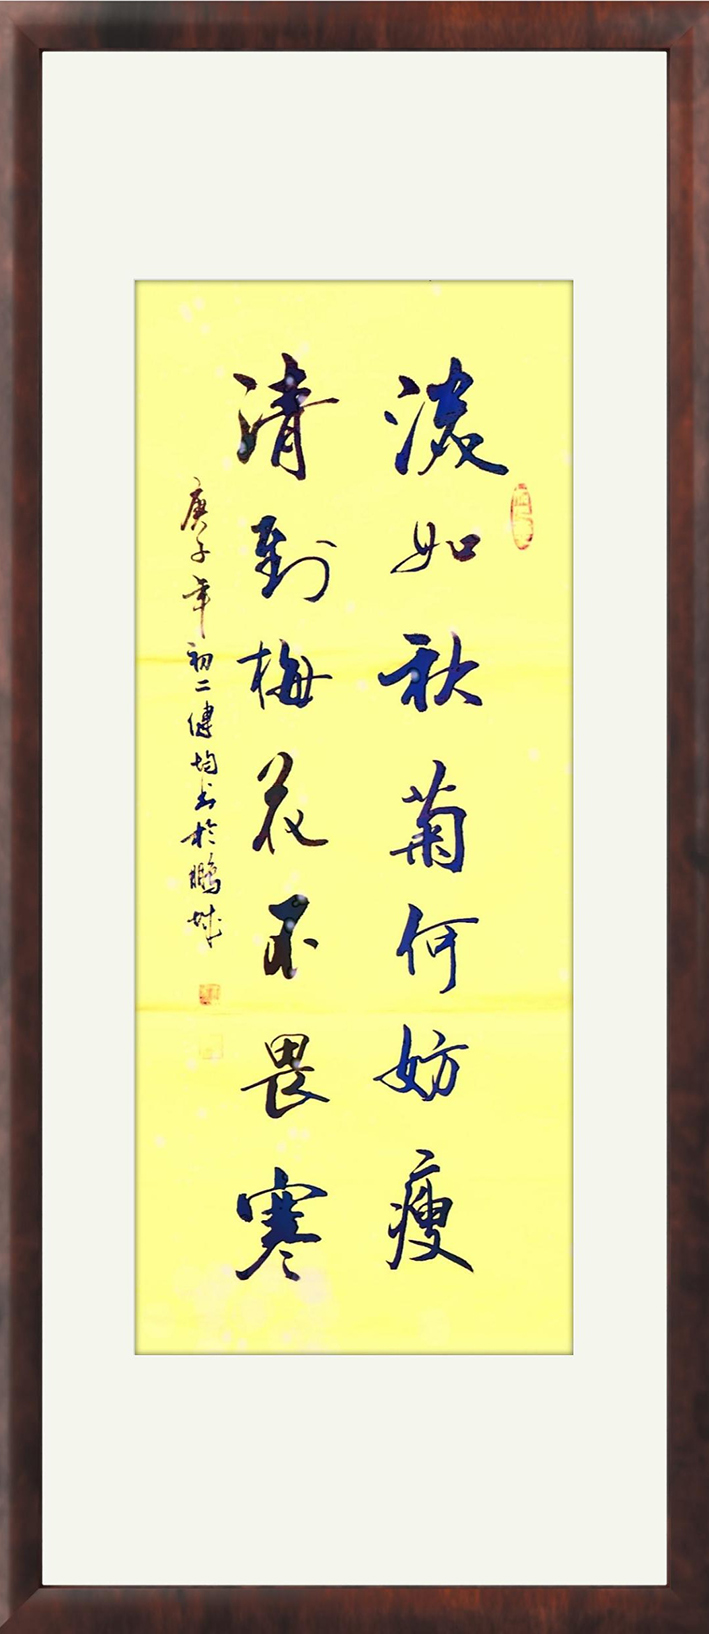 淡如秋菊何妨瘦
清到梅花不畏寒
庚子年初二健均书於鵬城